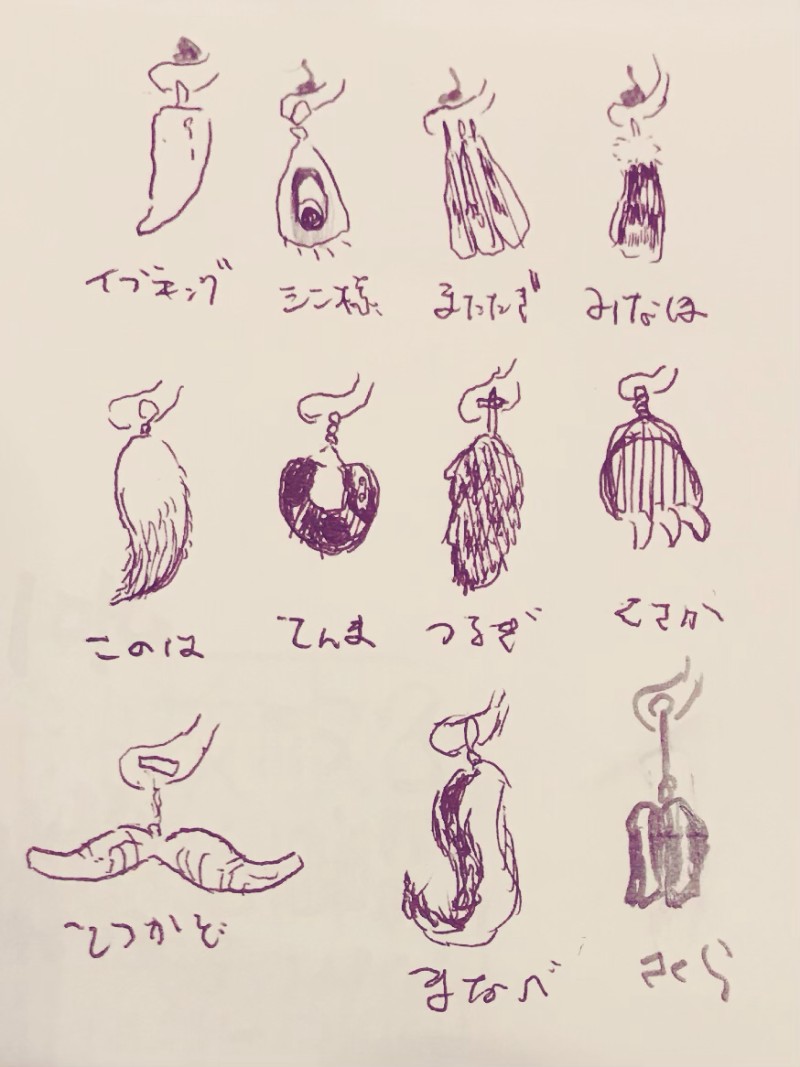 イブキング
シン様
またたぎ
みなほ
このは
てんま
つるぎ
くさか
てつかぞ
まなべ
さくら